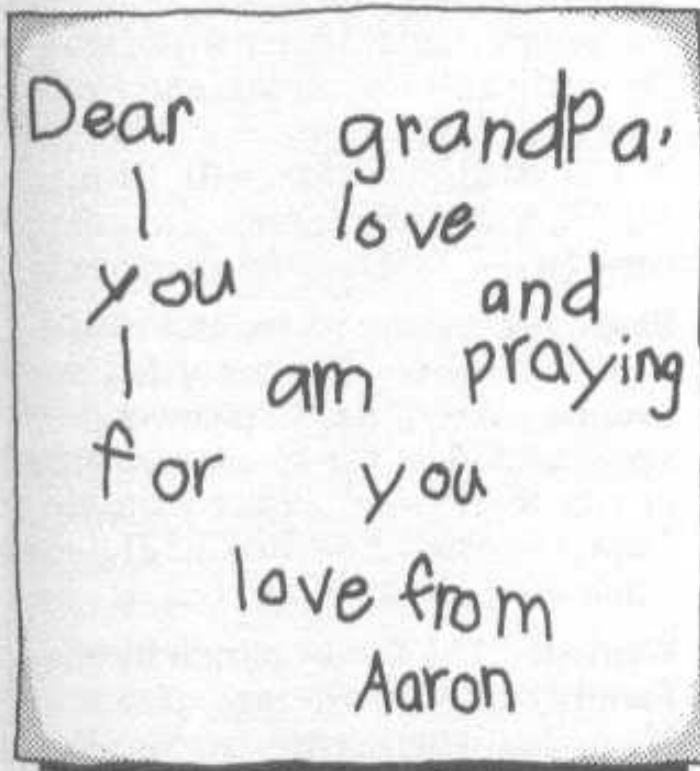 Dear grandPa,
I love
you and
I am praying
for you
love from
Aaron